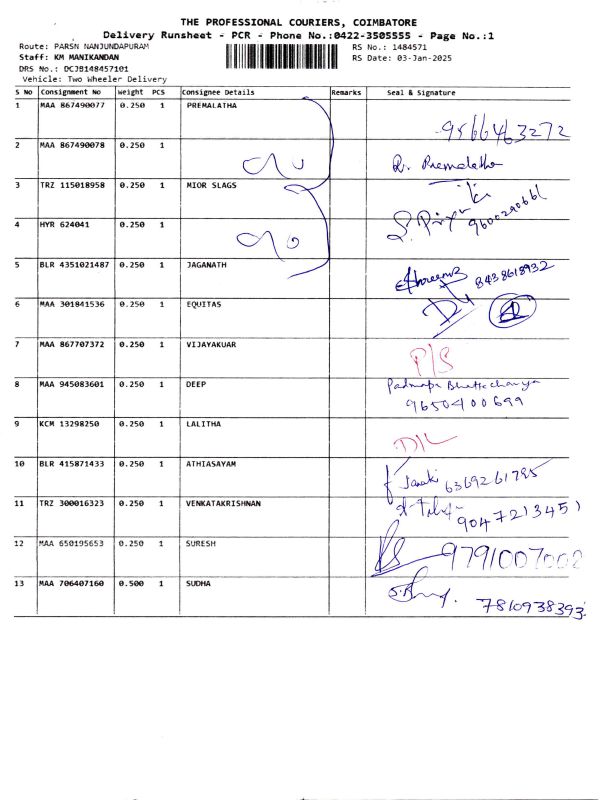 THE PROFESSIONAL COURIERS, COIMBATORE
Delivery Runsheet - PCR - Phone No.:0422-3505555 - Page No.:1
Route: PARSN NANJUNDAPURAM RS No.: 1484571
Staff: KM MANIKANDAN RS Date: 03-Jan-2025
DRS No.: DCJB148457101
Vehicle: Two Wheeler Delivery
S No Consignment No Weight PCS Consignee Details Remarks Seal & Signature
1 MAA 867490077 0.250 1 PREMALATHA 9566463272
2 MAA 867490078 0.250 1 R. Premalatha
3 TRZ 115018958 0.250 1 MIOR SLAGS
4 HYR 624041 0.250 1 9600290661
5 BLR 4351021487 0.250 1 JAGANATH 8438618932
6 MAA 301841536 0.250 1 EQUITAS
7 MAA 867707372 0.250 1 VIJAYAKUAR P/S
8 MAA 945083601 0.250 1 DEEP Padmapa Bhattacharya
9650400699
9 KCM 13298250 0.250 1 LALITHA D/L
10 BLR 415871433 0.250 1 ATHIASAYAM Janaki 6369261785
11 TRZ 300016323 0.250 1 VENKATAKRISHNAN 9047213451
12 MAA 650195653 0.250 1 SURESH 9791007002
13 MAA 706407160 0.500 1 SUDHA 7810938393